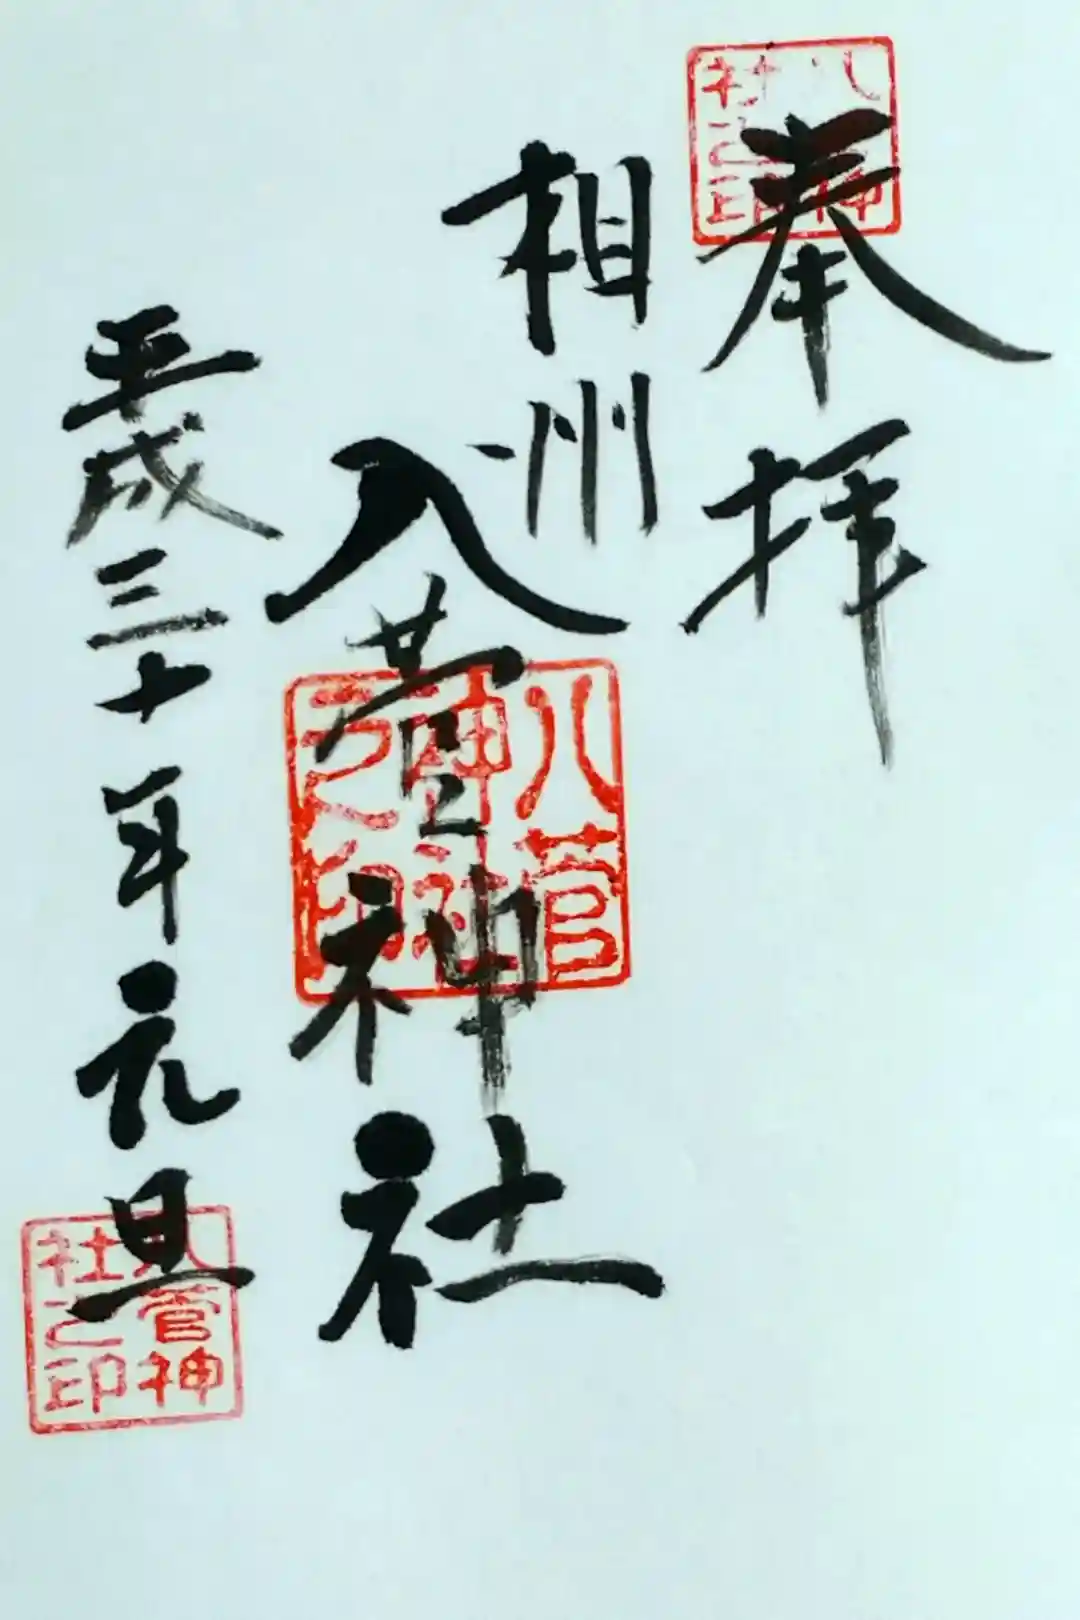 奉拝
八菅神社之印
相州
八菅神社
八菅神社之印
平成三十年元旦
八菅神社之印